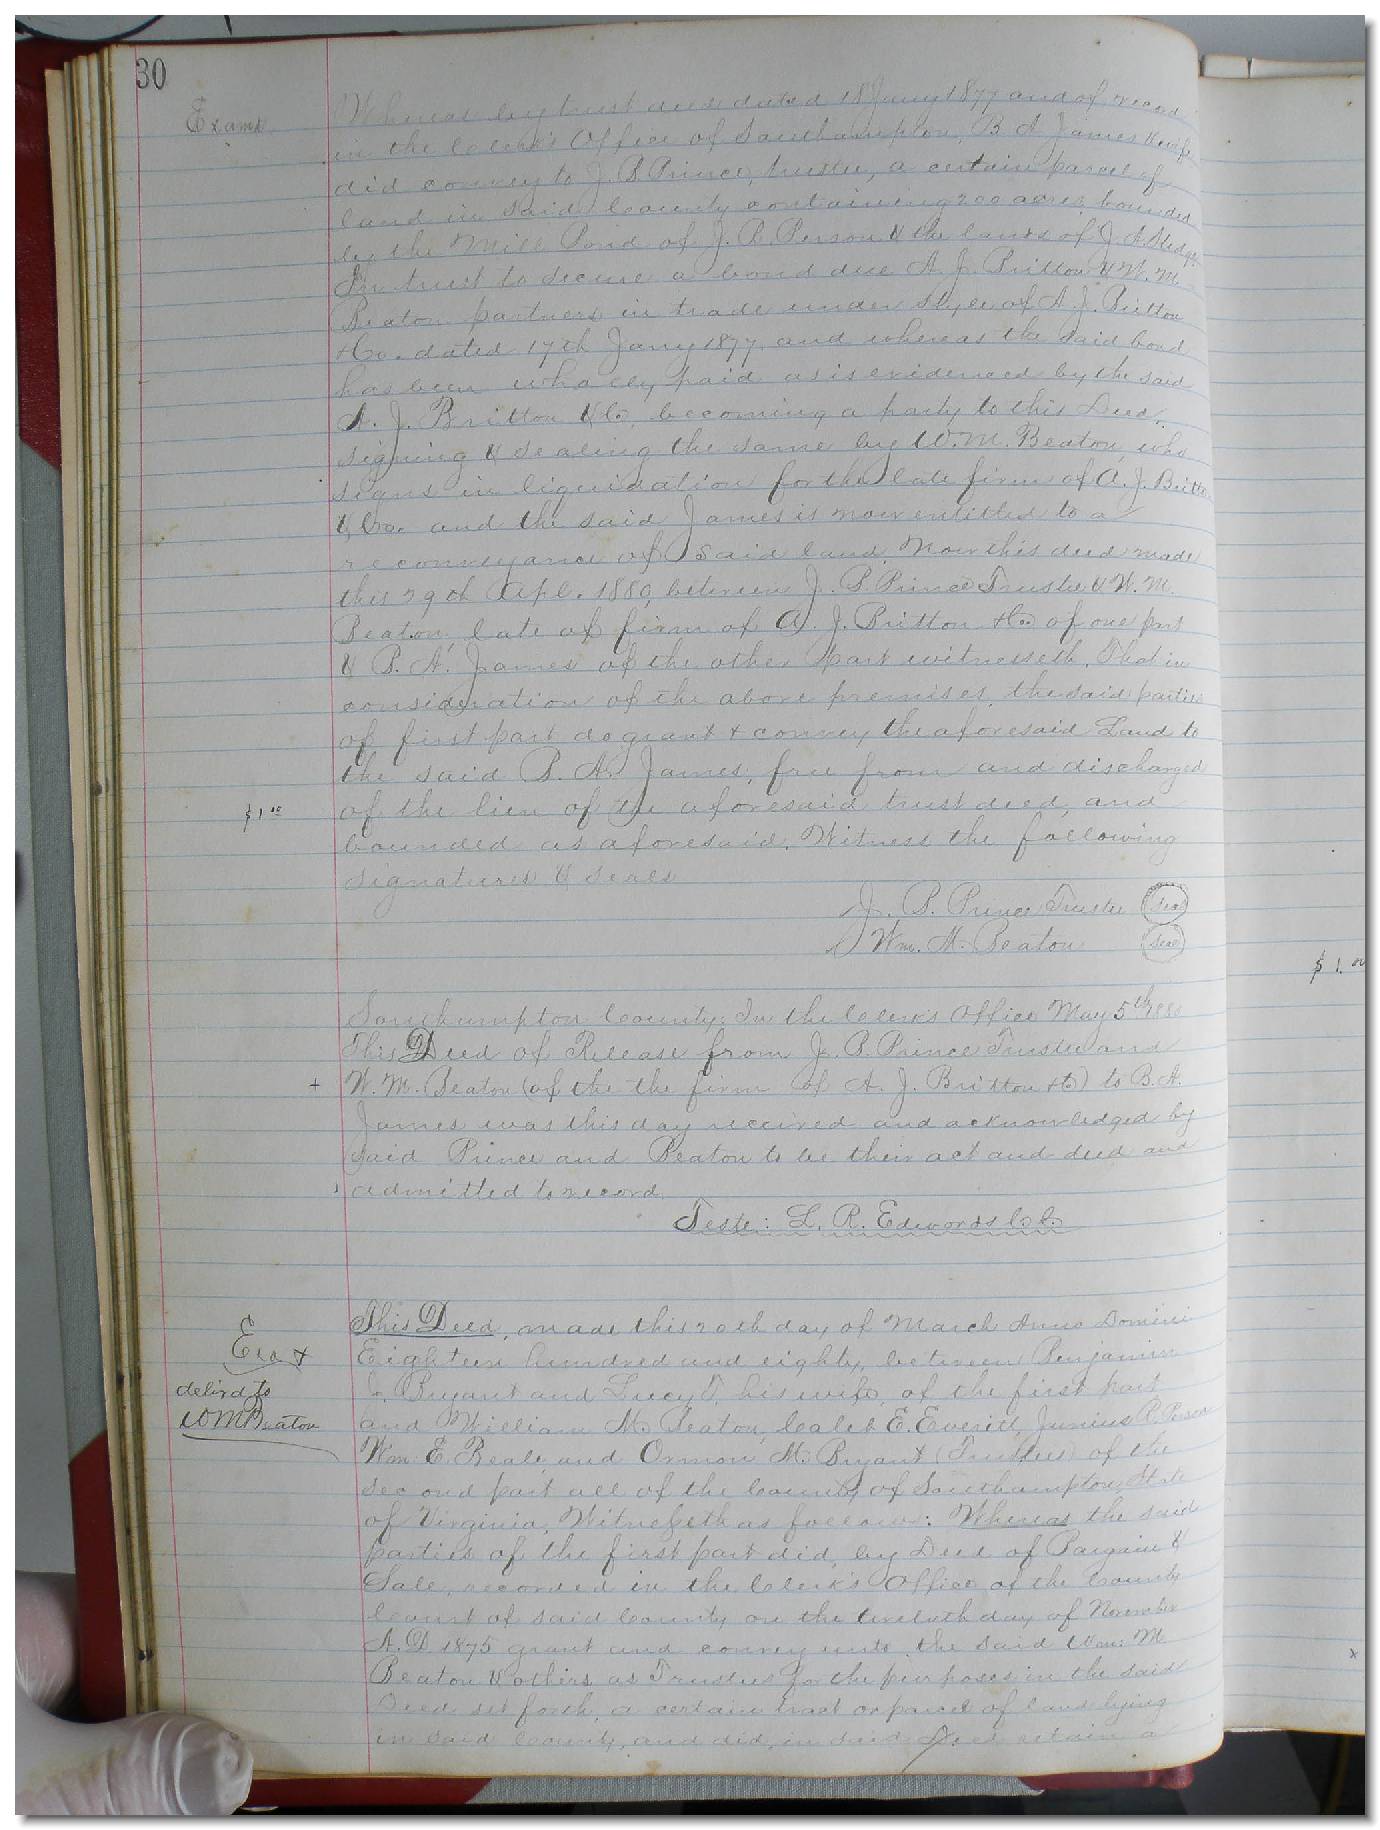 30
Examd
Whereas by trust deed dated 18 Jany 1877 and of record
in the Clerk's Office of Southampton, B A James & wife
did convey to J. B. Prince, trustee, a certain parcel of
land in said County containing 200 acres bounded
by the Mill Pond of J. R. Person & the lands of J A
In trust to secure a bond due A. J. Britton & W. M.
Beaton partners in trade under style of A. J. Britton
& Co. dated 17th Jany 1877, and whereas the said bond
has been wholly paid as is evidenced by the said
A. J. Britton & Co, becoming a party to this Deed,
signing & sealing the same by W. M. Beaton, who
signs in liquidation for the late firm of A. J. Britton
& Co. and the said James is now entitled to a
reconveyance of said land. Now this deed made
this 29th Apl. 1880, between J. B. Prince Trustee & W. M.
Beaton late of firm of A. J. Britton & Co of one part
& B. A. James of the other part witnesseth. That in
consideration of the above premises, the said parties
of first part do grant & convey the aforesaid Land to
the said B. A. James, free from and discharged
of the lien of the aforesaid trust deed, and
$1.00
bounded as aforesaid. Witness the following
signatures & seals
J. B. Prince Trustee Seal
Wm. M. Beaton Seal
$ 1. 00
Southampton County: In the Clerk's Office May 5th 1880
This Deed of Release from J. B. Prince Trustee and
+ W. M. Beaton (of the the firm of A. J. Britton & Co) to B. A.
James was this day received and acknowledged by
said Prince and Beaton to be their act and deed and
admitted to record.
Teste: L. R. Edwards C. C.
This Deed, made this 20th day of March Anno Domini
Eighteen hundred and eighty, between Benjamin
Exd &
J. Bryant and Lucy T. his wife, of the first part
delivd to
and William M. Beaton, Caleb E. Everitt, Junius R. Person
WM Beaton
Wm E. Beale, and Ormon M. Bryant (Trustees) of the
second part all of the County of Southampton, State
of Virginia, Witnesseth as follows: Whereas the said
parties of the first part did, by Deed of Bargain &
Sale, recorded in the Clerk's Office of the County
Court of said County on the twelvth day of November
A. D 1875 grant and convey unto the said Wm: M
Beaton & others as Trustees for the purposes in the said
Deed set forth, a certain tract or parcel of land lying
in said County, and did, in said Deed retain a
x